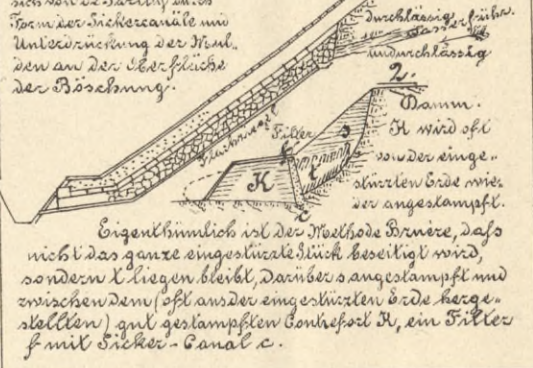 Form der Sickercanäle und
Unterdrückung der Mul-
den an der Oberfläche
der Böschung.
durchlässig
wasserführ.
undurchlässig
2.
Damm.
K wird oft
von der einge-
stürzten Erde wie-
der angestampft.
Filter
f
s
t
K
c
Eigenthümlich ist der Methode Bruère, daß
nicht das ganze eingestürzte Stück beseitigt wird,
sondern t liegen bleibt, darüber s angestampft und
zwischen dem (oft aus der eingestürzten Erde herge-
stellten) gut gestampften Contrefort K, ein Filter
f mit Sicker-Canal c.